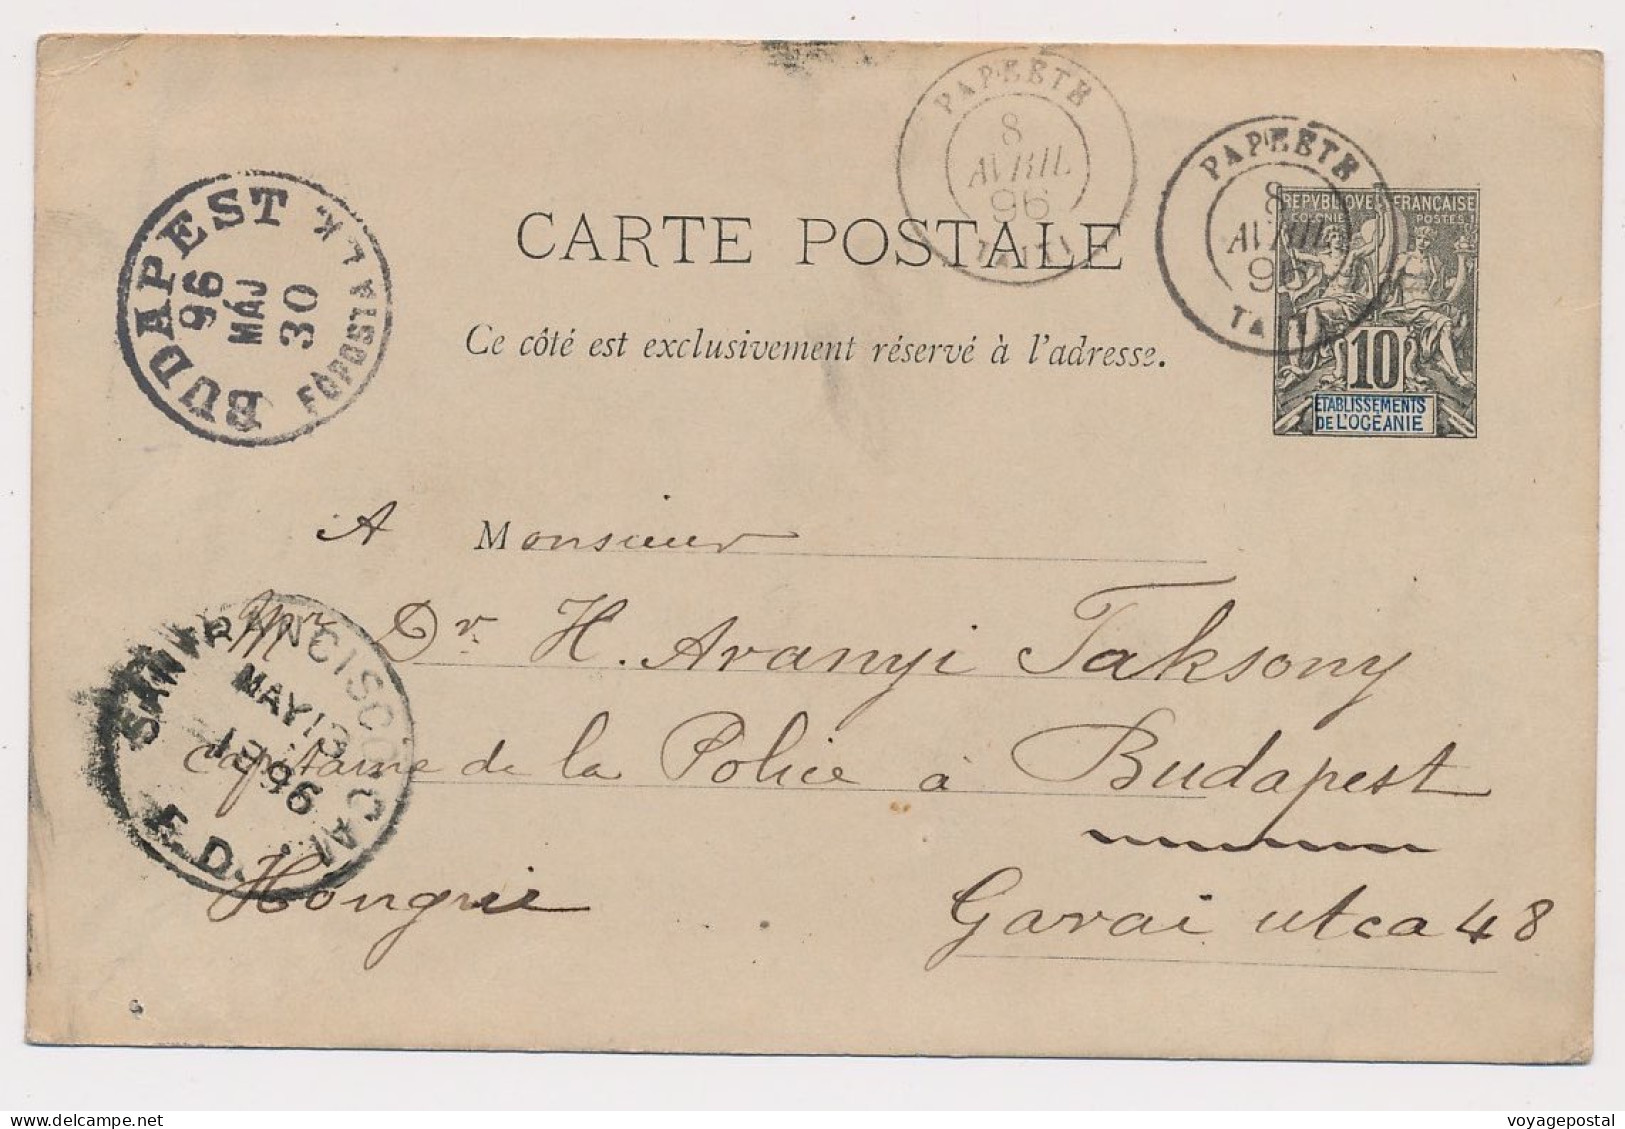 PAPEÈTE
8
AVRIL
96
TAITI
PAPEÈTE
8
AVRIL
96
TAITI
REPVBLIQVE FRANÇAISE
COLONIES POSTES
10
ETABLISSEMENTS
DE L'OCÉANIE
BUDAPEST
96
MÁJ
30
FŐPOSTA
CARTE POSTALE
Ce côté est exclusivement réservé à l'adresse.
A Monsieur
Mr Dr. H. Aranyi Taksony
Capitaine de la Police à Budapest
Hongrie Garai utca 48
SAN FRANCISCO CAL
MAY 13
1896
F.D.
voyagepostal